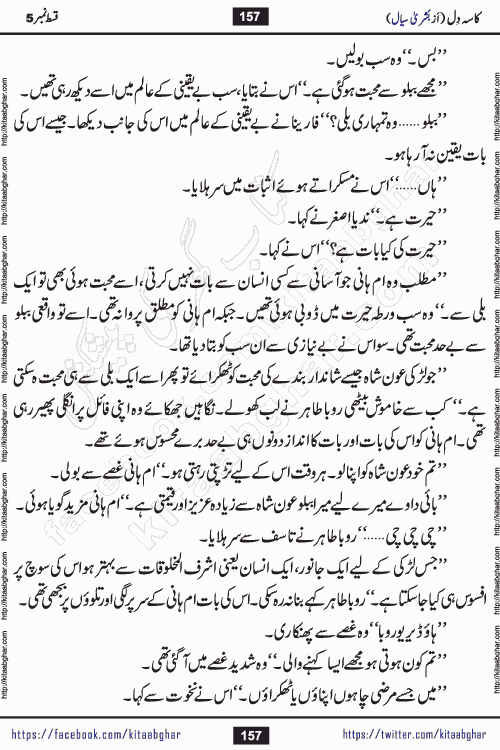 کاسہ دل (از بشریٰ سیال)
157
قسط نمبر 5
’’بس۔‘‘ وہ سب بولیں۔
’’مجھے ببلو سے محبت ہو گئی ہے۔‘‘ اس نے بتایا، سب بے یقینی کے عالم میں اسے دیکھ رہی تھیں۔
’’ببلو ...... وہ تمہاری بلی؟‘‘ فارینا نے بے یقینی کے عالم میں اس کی جانب دیکھا۔ جیسے اس کی
بات یقین نہ آ رہا ہو۔
’’ہاں ......‘‘ اس نے مسکراتے ہوئے اثبات میں سر ہلایا۔
’’حیرت ہے۔‘‘ ندیا اصغر نے کہا۔
’’حیرت کی کیا بات ہے؟‘‘ اس نے کہا۔
’’مطلب وہ ام ہانی جو آسانی سے کسی انسان سے بات نہیں کرتی، اسے محبت ہوئی بھی تو ایک
بلی سے۔‘‘ وہ سب ورطہ حیرت میں ڈوبی ہوئی تھیں۔ جبکہ ام ہانی کو مطلق پروا نہ تھی۔ اسے تو واقعی ببلو
سے بے حد محبت تھی۔ سو اس نے بے نیازی سے ان سب کو بتا دیا تھا۔
’’جو لڑکی عون شاہ جیسے شاندار بندے کی محبت کو ٹھکرائے تو پھر اسے ایک بلی سے ہی محبت ہو سکتی
ہے۔‘‘ کب سے خاموش بیٹھی روبا طاہر نے لب کھولے۔ نگاہیں جھکائے وہ اپنی فائل پر انگلی پھیر رہی
تھی۔ ام ہانی کو اس کی بات اور بات کا انداز دونوں ہی بے حد برے محسوس ہوئے تھے۔
’’تم خود عون شاہ کو اپنا لو۔ ہر وقت اس کے لیے تڑپتی رہتی ہو۔‘‘ ام ہانی غصے سے بولی۔
’’بائی دا وے میرے لیے میرا ببلو عون شاہ سے زیادہ عزیز اور قیمتی ہے۔‘‘ ام ہانی مزید گویا ہوئی۔
’’چی چی چی ......‘‘ روبا طاہر نے تاسف سے سر ہلایا۔
’’جس لڑکی کے لیے ایک جانور، ایک انسان یعنی اشرف المخلوقات سے بہتر ہو اس کی سوچ پر
افسوس ہی کیا جا سکتا ہے۔‘‘ روبا طاہر کہے بنا نہ رہ سکی۔ اس کی بات ام ہانی کے سر پر لگی اور تلوؤں پر بجھی تھی۔
’’ہاؤ ڈیر یو روبا‘‘ وہ غصے سے پھنکاری۔
’’تم کون ہوتی ہو مجھے ایسا کہنے والی۔‘‘ وہ شدید غصے میں آ گئی تھی۔
’’میں جسے مرضی چاہوں اپناؤں یا ٹھکراؤں۔‘‘ اس نے نخوت سے کہا۔
https://facebook.com/kitaabghar
157
https://twitter.com/kitaabghar
http://kitaabghar.com